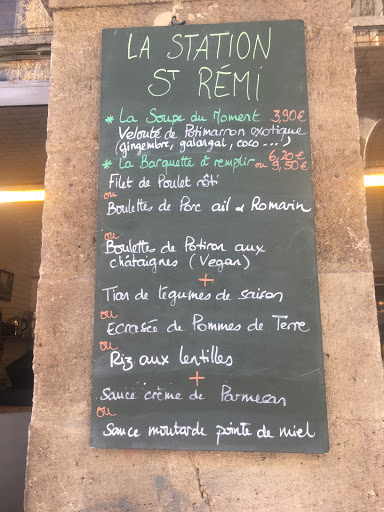 LA STATION
ST RÉMI
* La Soupe du Moment 3,90€
Velouté de Potimarron exotique
(gingembre, galangal, coco ...)
* La Barquette à remplir 6,20€ ou 9,50€
Filet de Poulet rôti
ou
Boulettes de Porc ail & Romarin
ou
Boulette de Potiron aux
châtaignes (Vegan)
+
Tian de légumes de saison
ou
Ecrasée de Pommes de Terre
ou
Riz aux lentilles
+
Sauce crème de Parmesan
ou
Sauce moutarde pointe de miel